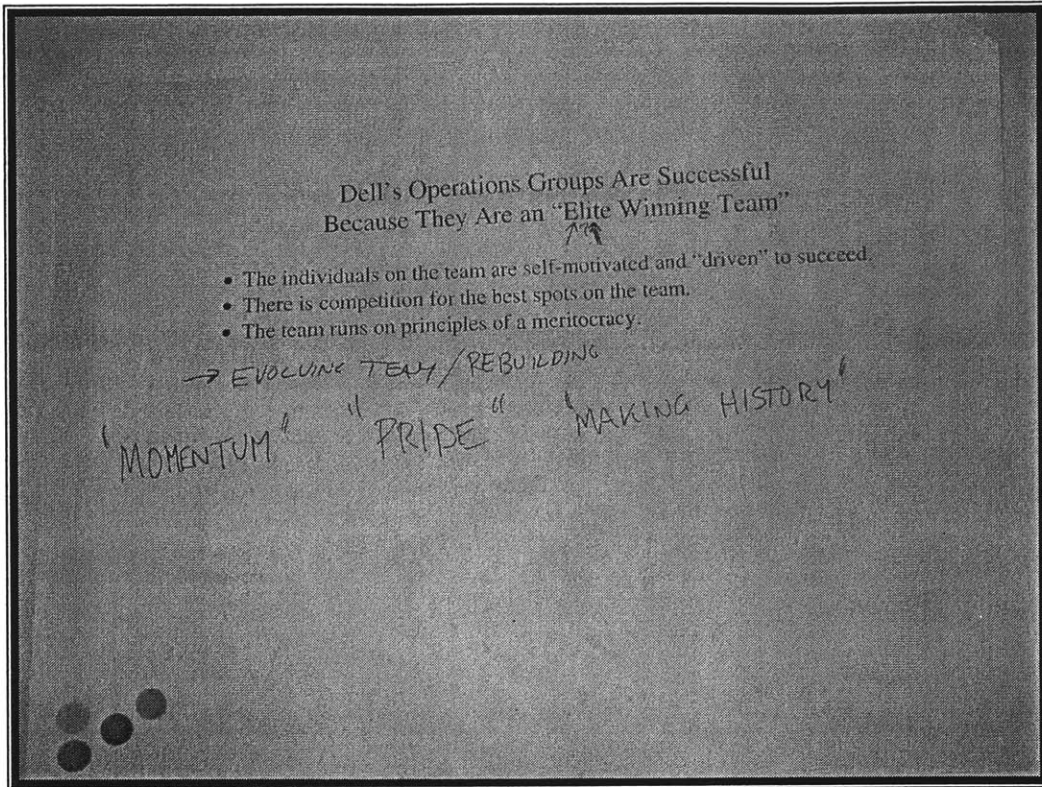 Dell's Operations Groups Are Successful
Because They Are an "Elite Winning Team"
• The individuals on the team are self-motivated and "driven" to succeed.
• There is competition for the best spots on the team.
• The team runs on principles of a meritocracy.
→ EVOLVING TEAM/REBUILDING
"MOMENTUM" "PRIDE" "MAKING HISTORY"